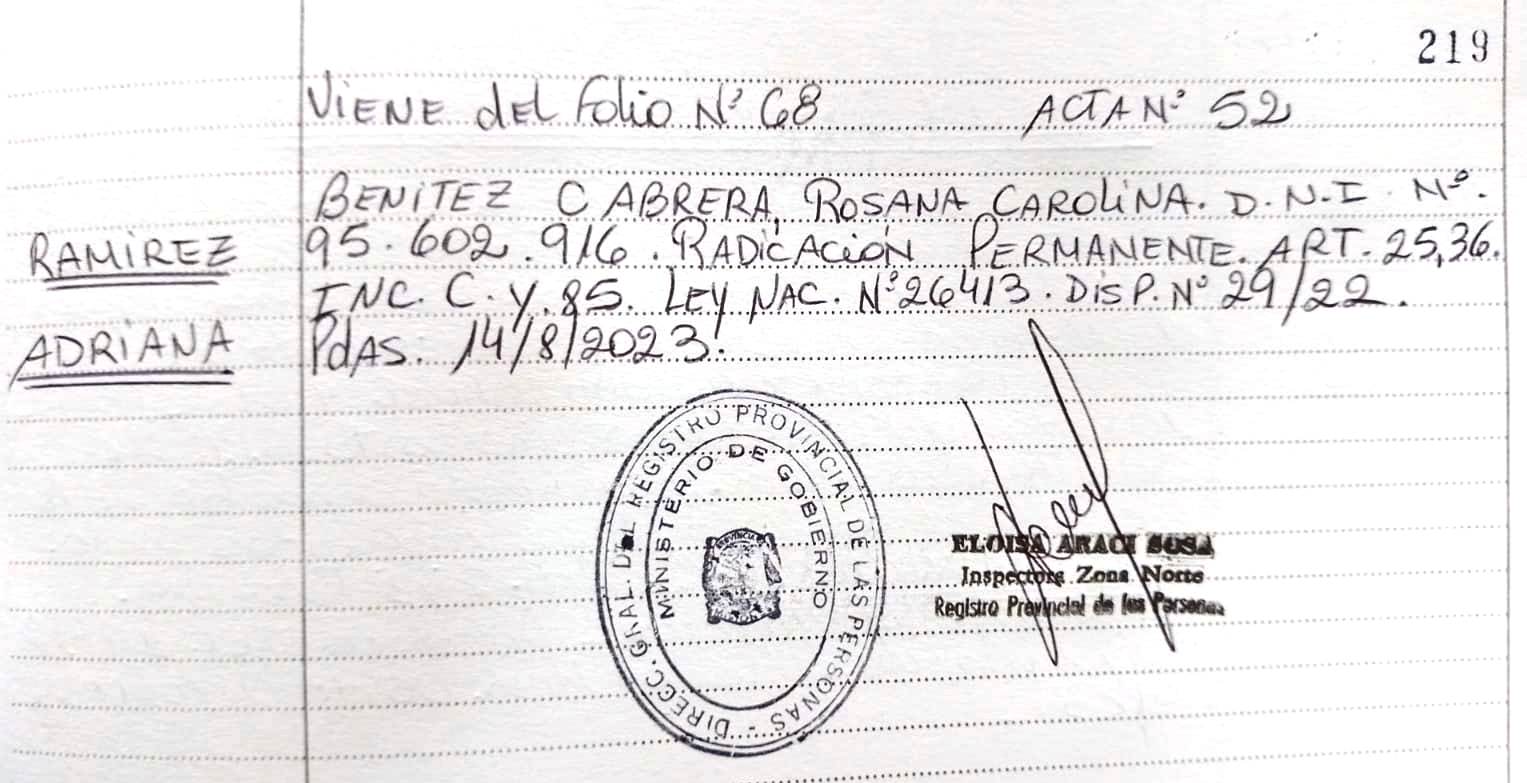 219
Viene del Folio Nº 68 ACTA Nº 52
BENITEZ CABRERA, ROSANA CAROLINA. D.N.I Nº.
RAMIREZ
95.602.916. RADICACION PERMANENTE. ART. 25,36.
INC. C. Y. 85. LEY NAC. Nº 26413. DISP. Nº 29/22.
ADRIANA
PdAS. 14/8/2023.
DIRECC. GRAL. DEL REGISTRO PROVINCIAL DE LAS PERSONAS -
MINISTERIO DE GOBIERNO
PROVINCIA
MISIONES
ELOISA ARACI SOSA
Inspectora Zona Norte
Registro Provincial de las Personas